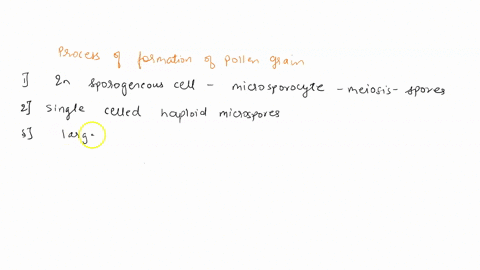 Process of formation of pollen grain
1] 2n sporogeneous cell - microsporocyte - meiosis - spores
2] single celled haploid microspores
3] larg